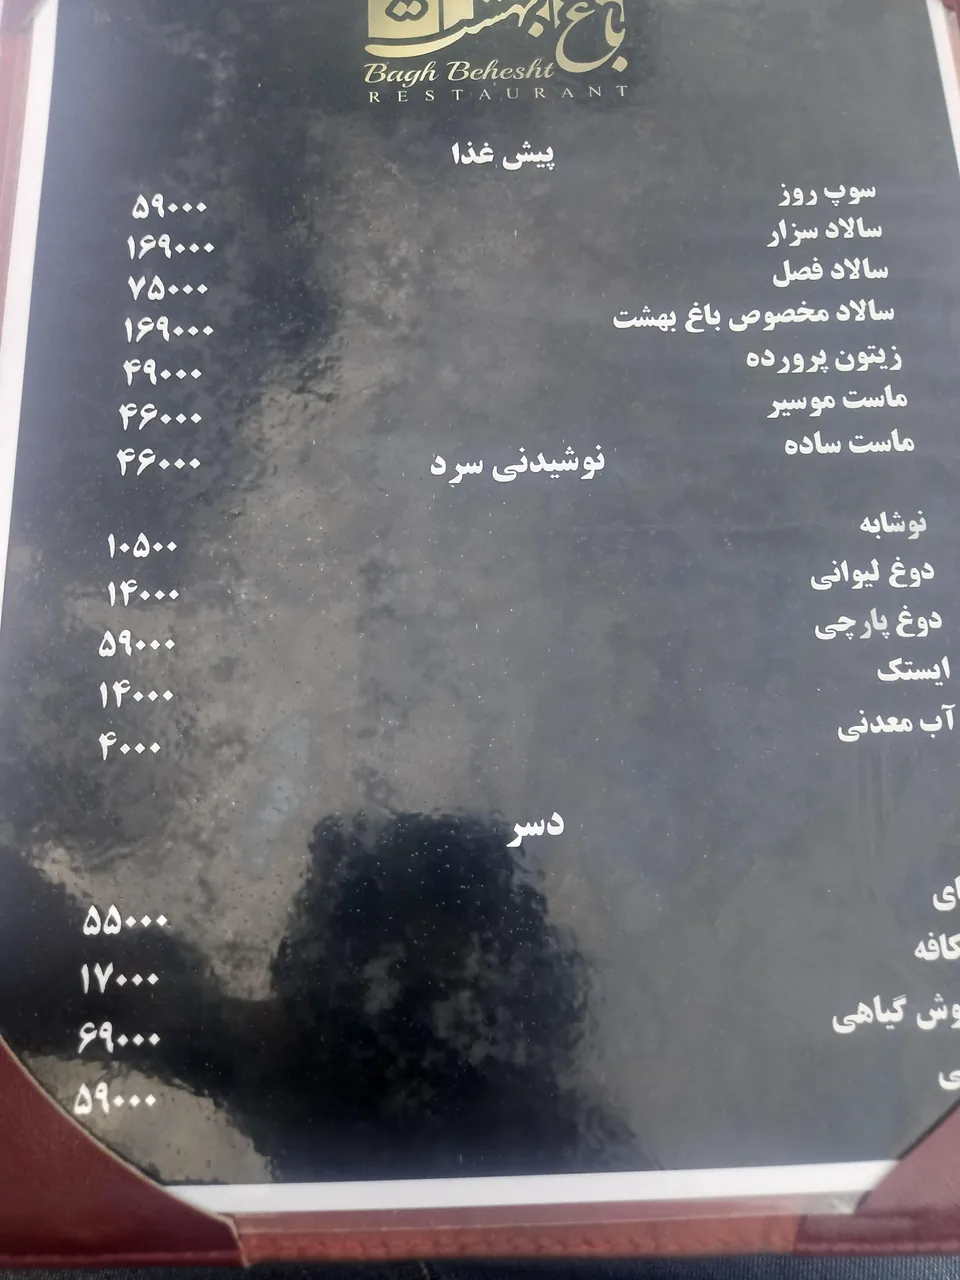 باغ بهشت
Bagh Behesht
RESTAURANT
پیش غذا
سوپ روز ۵۹۰۰۰
سالاد سزار ۱۶۹۰۰۰
سالاد فصل ۷۵۰۰۰
سالاد مخصوص باغ بهشت ۱۶۹۰۰۰
زیتون پرورده ۴۹۰۰۰
ماست موسیر ۴۶۰۰۰
ماست ساده ۴۶۰۰۰
نوشیدنی سرد
نوشابه ۱۰۵۰۰
دوغ لیوانی ۱۴۰۰۰
دوغ پارچی ۵۹۰۰۰
ایستک ۱۴۰۰۰
آب معدنی ۴۰۰۰
دسر
۵۵۰۰۰
کافه ۱۷۰۰۰
گیاهی ۶۹۰۰۰
۵۹۰۰۰